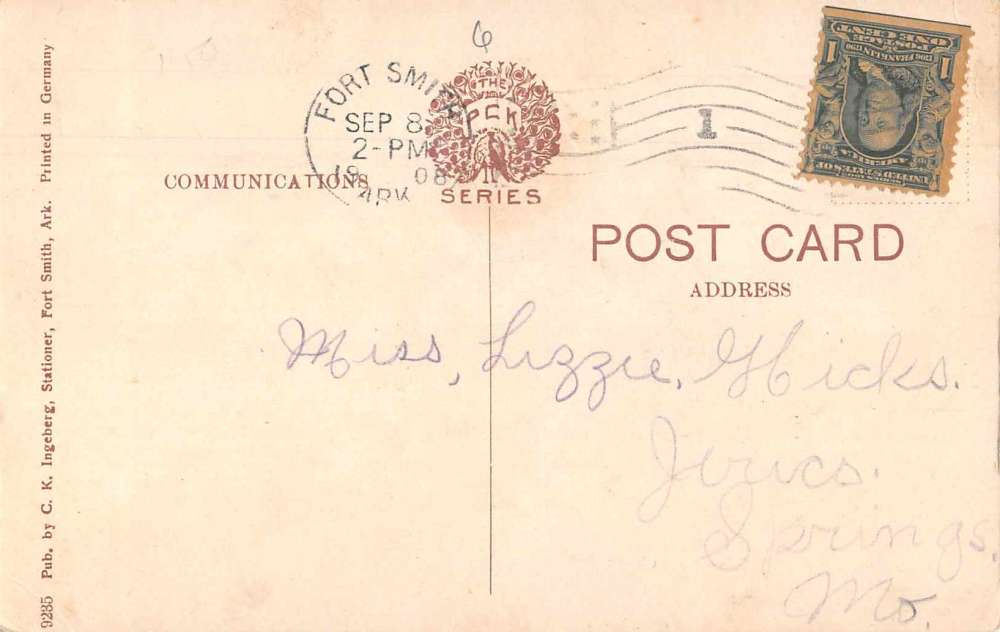 6
FORT SMITH
SEP 8
2-PM
1908
ARK.
THE
PCK
SERIES
1
1 POSTAGE 1
ONE CENT
UNITED STATES OF
AMERICA
COMMUNICATIONS
POST CARD
ADDRESS
Miss, Lizzie, Hicks.
Springs,
Mo.
9235 Pub. by C. K. Ingeberg, Stationer, Fort Smith, Ark. Printed in Germany